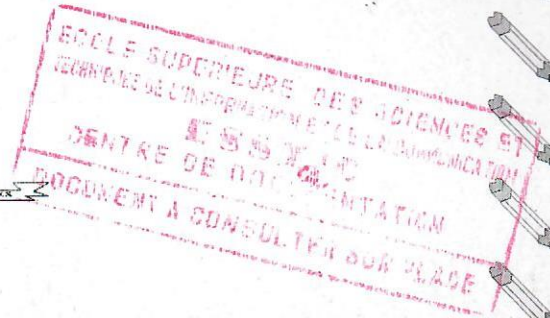 ECOLE SUPERIEURE DES SCIENCES ET
TECHNIQUES DE L'INFORMATION ET DE LA COMMUNICATION
ESSTIC
CENTRE DE DOCUMENTATION
DOCUMENT A CONSULTER SUR PLACE